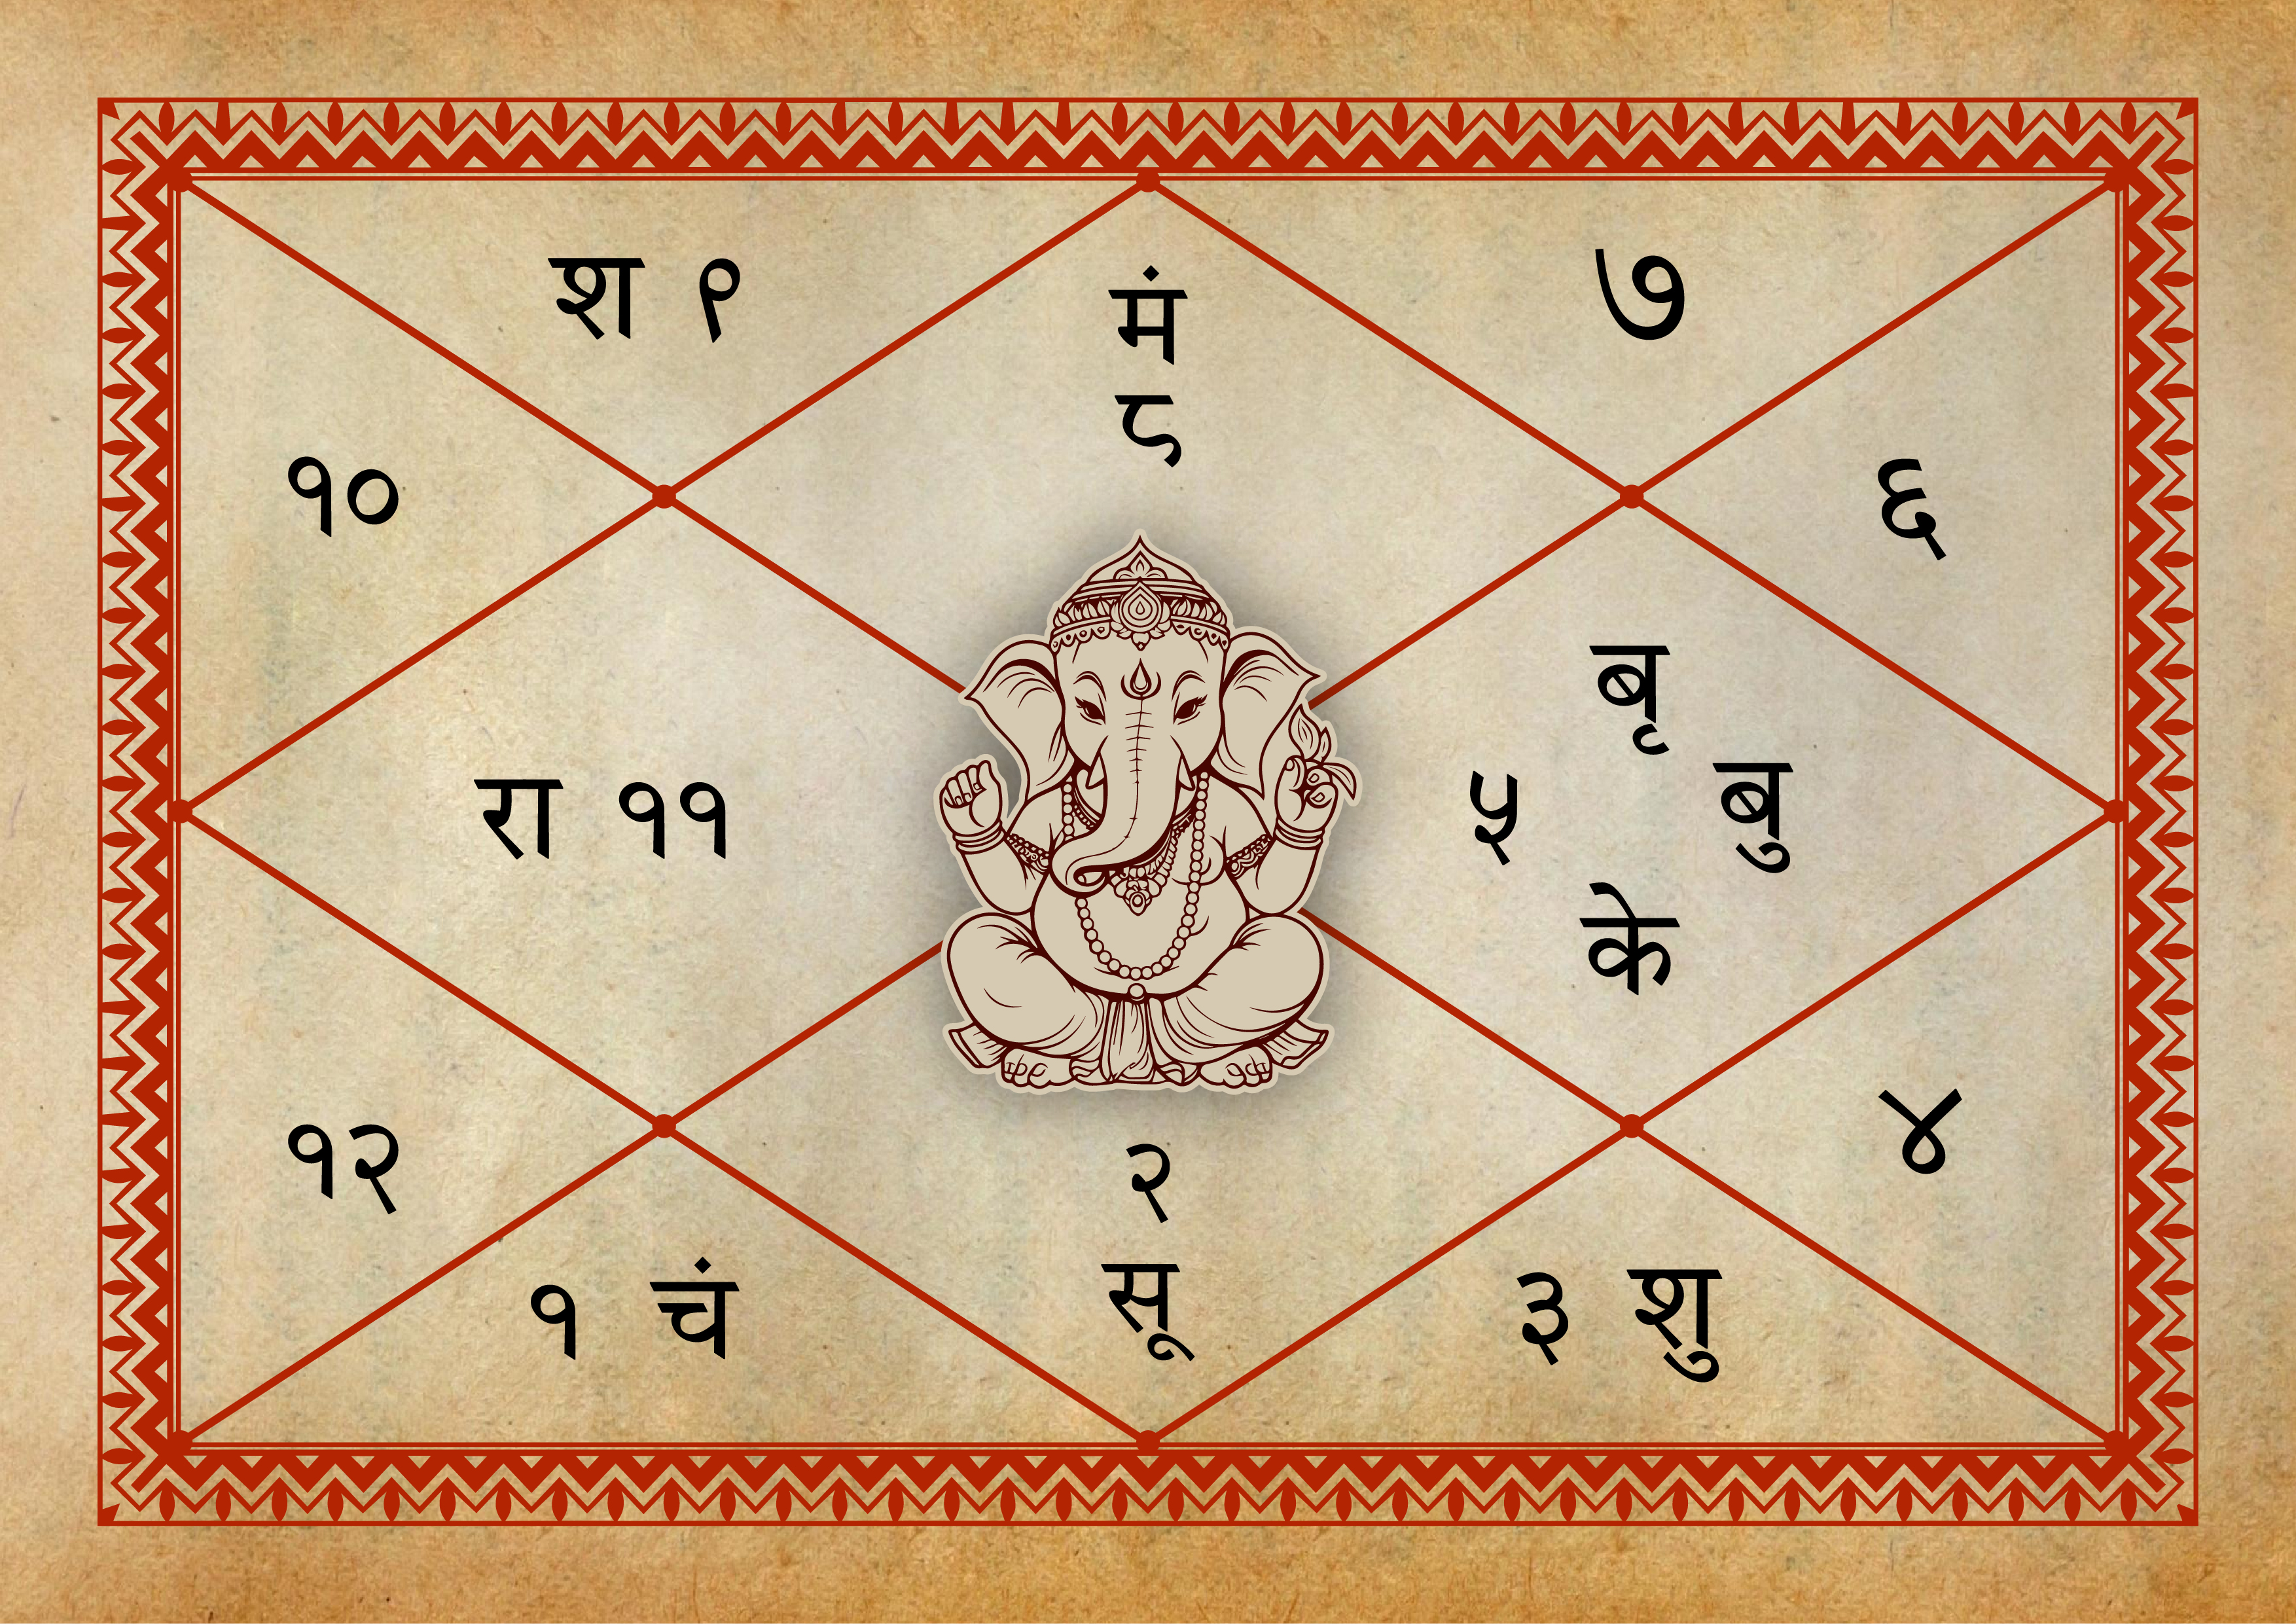 श ९
मं
८
७
१०
६
रा ११
५
बृ
बु
के
१२
४
१ चं
२
सू
३ शु